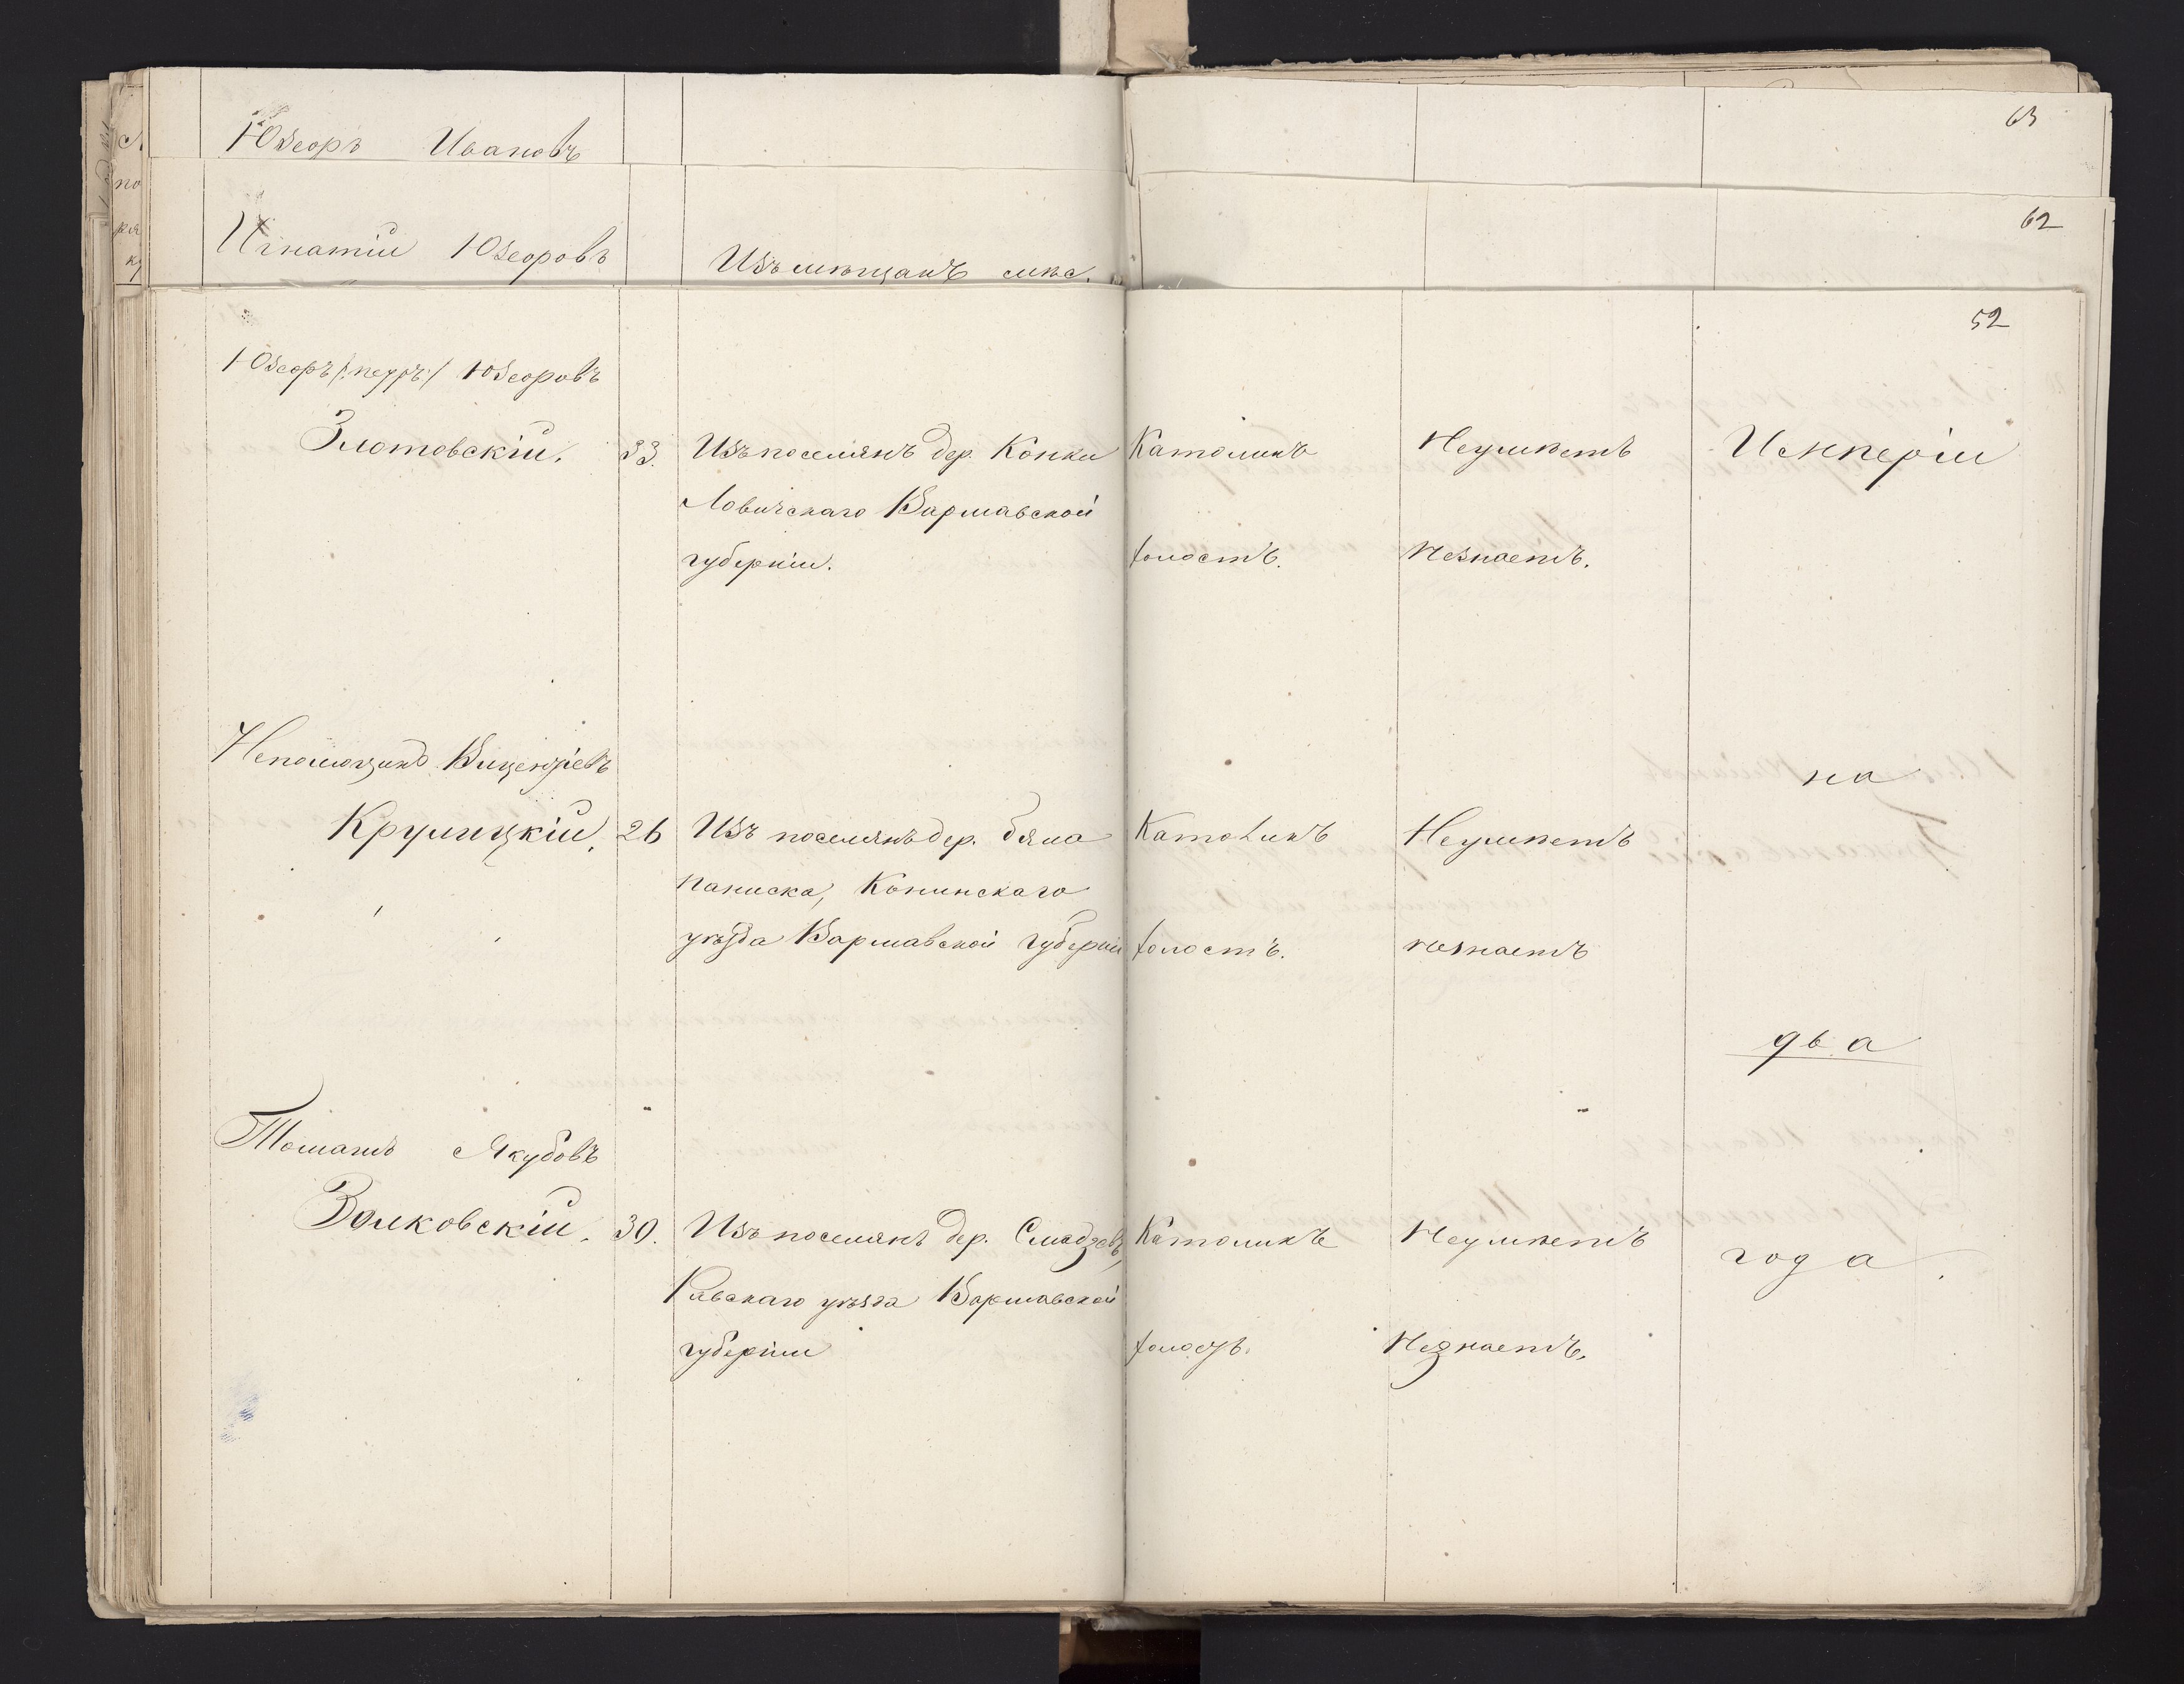 63
Юзефъ Ивановъ
62
Игнатій Юзефовъ
Изъ мѣщанъ мѣс.
52
Юзефъ /: :/ Юзефовъ
Злотовскій. 33. Изъ поселянъ дер. Конки Католикъ Неумѣетъ Имперіи
Ловичскаго Варшавской
губерніи. холостъ. незнаетъ.
Непомоцинъ Виценціевъ
на
Крулицкій. 26 Изъ поселянъ дер. бяла Католикъ Неумѣетъ
паниска, Конинскаго
уѣзда Варшавской губерніи холостъ. незнаетъ
два
Томашъ Якубовъ
Залковскій. 30. Изъ поселянъ дер. Католикъ Неумѣетъ
года.
Равскаго уѣзда Варшавской
губерніи холостъ. Незнаетъ.